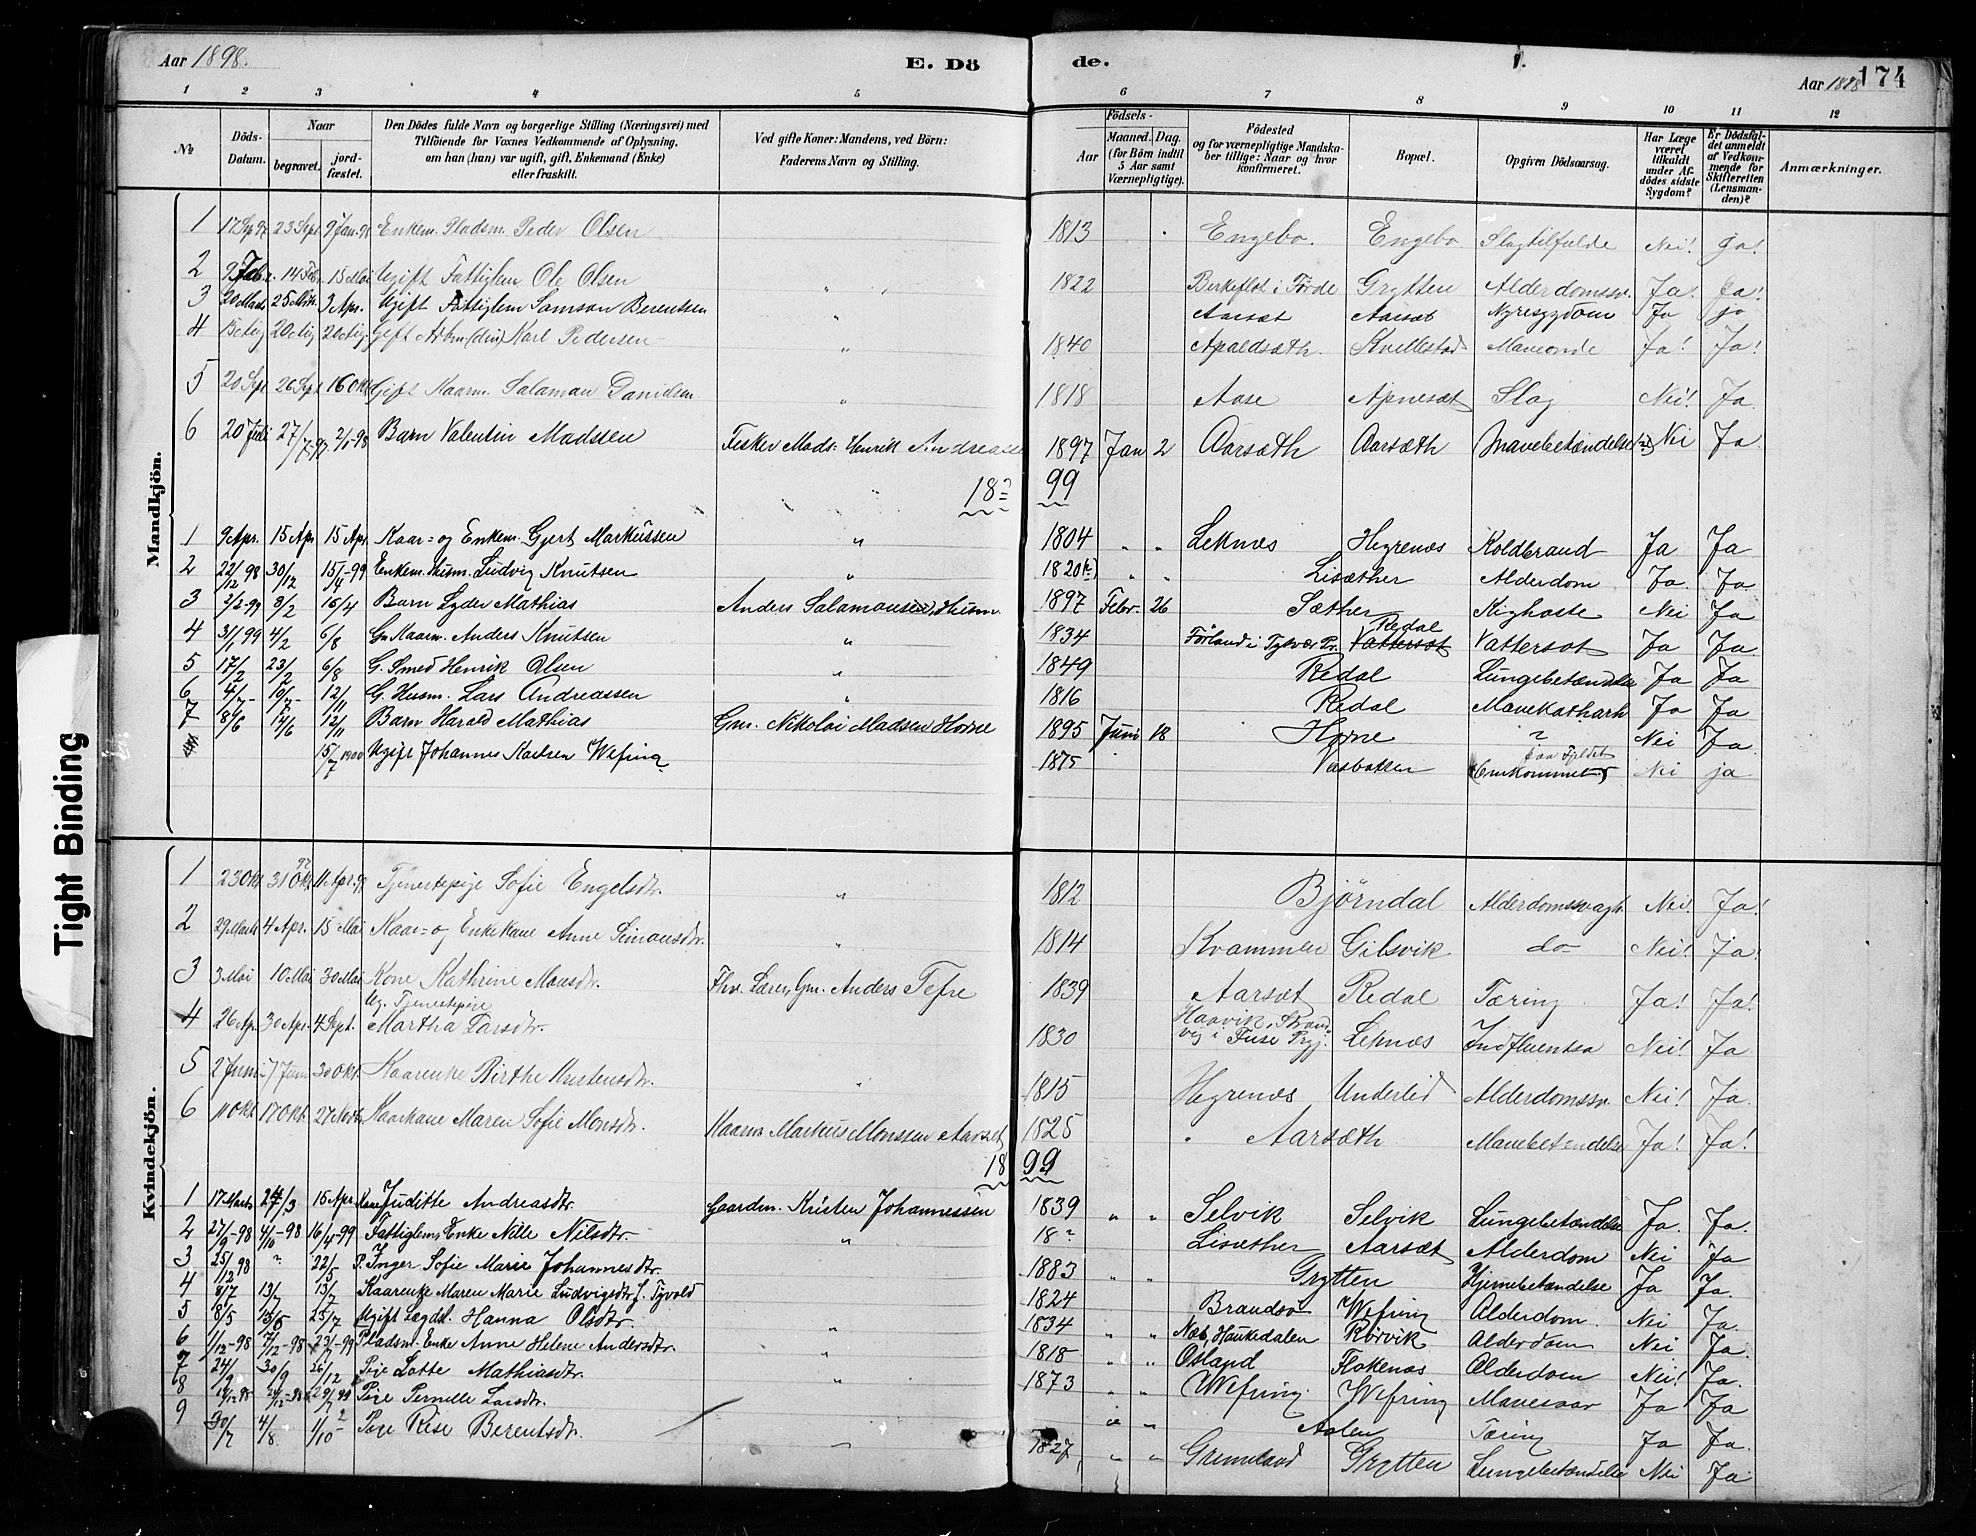 Aar 1898.
E. Dö
de.
Aar 1898
174
1 2 3 4 5 6 7 8 9 10 11 12
№
Döds-Datum.
Naar
begravet.
jord-fæstet.
Den Dödes fulde Navn og borgerlige Stilling (Næringsvei) med
Tilföiende for Voxnes Vedkommende af Oplysning,
om han (hun) var ugift, gift, Enkemand (Enke)
eller fraskilt.
Ved gifte Koner: Mandens, ved Börn:
Faderens Navn og Stilling.
Födsels-
Aar
Maaned. Dag.
(for Börn indtil
5 Aar samt
Værnepligtige).
Födested
og for værnepligtige Mandska-
ber tillige: Naar og hvor
konfirmeret.
Bopæl.
Opgiven Dödsaarsag.
Har Læge
været
tilkaldt
under Af-
dödes sidste
Sygdom?
Er Dödsfal-
det anmeldt
af Vedkom-
mende for
Skifteretten
(Lensman-
den)?
Anmærkninger.
Mandkjön.
1 17 Sep 97 23 Sept 9 Jan. 98 Enkem. Pladsm. Peder Olsen 1813 Engebø. Engebø Slagtilfælde Nei! Ja!
2 9 Feb. 14 Feb. 15 Mai Ugift Fattiglem Ole Olsen " 1822 Birkeflot i Førde Grytten Alderdomssv. Ja! Ja!
3 20 Marts 25 Mrts. 3 Apr. Ugift Fattiglem Samson Berentsen " Aarsæt Aarsæt Nyresygdom Ja ja
4 15 Aug 20 Aug 20 Aug. Gift Karl Pedersen " 1840 Apaldsæth. Kvellestad Maveonde Ja! Ja!
5 20 Sept 26 Sept 16 Okt Gift Kaarm. Salamon Danielsen " 1818 Aase Apnesæt Slag Nei! Ja.
6 20 Juli 27/7-97 2/1-98 Barn Valentin Madssen Fisker Mads Henrik Andreas 1897 Jan 2 Aarsæth Aarsæth Mavebetændelse Nei Ja.
18 99
1 9 Apr. 15 Apr 15 Apr Kaar- og Enkem. Gjert Markussen " 1804 " " Leknæs Hegrenæs Koldbrand Ja Ja
2 22/12 98 30/12 15/4-99 Enkem. Husm. Ludvig Knutsen " 1820 " " Lisæther Alderdom Ja. Ja.
3 2/2-99 8/2 16/4 Barn Lyder Mathias Anders Salamonsen, Husm. 1897 Febr. 26 Sæther Kighoste Nei Ja
4 31/1 99 4/2 6/8 G. Kaarm. Anders Knutsen " 1834 Førland i Tysvær Pr. Vattersot Redal Vattersot Ja Ja.
5 17/2 23/2 6/8 G. Smed Henrik Olsen " 1849 Redal Lungebetændelse Ja Ja
6 4/7- 10/7- 12/11 G. Husm. Lars Andreassen " 1816 Redal Mavekatharh Ja Ja
7 8/6 14/6 12/11 Barn Harald Mathias Gm. Nikolai Madsen Horne 1895 Juni 18 Horne ? Nei Ja.
15/7 1900 Ugift Johannes Karlsen Wefring 1875 Vasbotten Omkommet paa Fjeldet Nei ja
Kvindekjön.
1 23 Okt 31 Okt 97 11 Apr. 98 Tjenestepige Sofie Engelsdtr. " 1812 Bjørndal Alderdomssvagh. Nei! Ja!
2 29 Marts 4 Apr. 15 Mai Kaar- og Enkekone Anne Simonsdtr. " 1814 Kvammen Gilsvik do Nei! Ja!
3 3 Mai 10 Mai 30 Mai Kone Kathrine Monsdtr. Fhv. Lærer, Gm. Anders Tefre 1839 Aarsæt Redal Tæring Ja! Ja!
4 26 Apr. 30 Apr. 4 Sept. Ug. Tjenestepige Martha Larsdtr. 1830 Haavik, Strandvig i Fuse Prgj. Leknæs Influentsa Nei! Ja
5 2 Juni 7 Juni 30 Okt. Kaarenke Birthe Kristensdtr. " 1815 Hegrenæs Underlid Alderdomssv. Nei! Ja.
6 11 Okt 17 Okt. 27 Novbr. Kaarkone Maren Sofie Monsdtr. Kaarm. Markus Monssen Aarsæt 1825 " Aarsæth Mavebetændelse Ja! Ja!
18 99
1 17 Marts 24/3 15 Apr. Kone Juditte Andreasdtr. Gaardm. Kristen Johannessen 1839 " " Selvik Selvik Lungebetændelse Ja. Ja.
2 27/9-98 4/10-98 16/4-99 Fattiglem, Enke Nille Nilsdtr. " 18? Lisæther Aarsæt Alderdom Nei Ja
3 25/12 98 " 22/5 P. Inger Sofie Marie Johannesdtr. 1883 " " Grytten Hjernebetændelse Ja Ja.
4 8/7 13/7 13/7 Kaarenke Maren Marie Ludvigsdtr. J. Tyvold 1824 Brandsø Wefring Alderdom. Nei Ja.
5 8/5 13/5 23/7 Ugift Lægdl. Hanna Olsdtr. " 1834 " " Næs, Haukedalen Rørvik Alderdom Nei Ja.
6 1/12-98 7/12-98 23/7-99 Pladsm. Enke Anne Helene Andersdtr. 1818 " " Osland Flokenæs Alderdom Nei! Ja.
7 24/9 30/9 26/12 Pige Lotte Mathiasdtr. " 1873 " " Wefring. Wefring Mavesaar Ja Ja
8 Pige Pernille Larsdtr. " " Aalen Tæring Ja Ja.
9 30/7 4/8 1/10 Pige Rise Berentsdtr. 1827 " " Grimeland Grytten Lungebetændelse Nei Ja.
Tight Binding